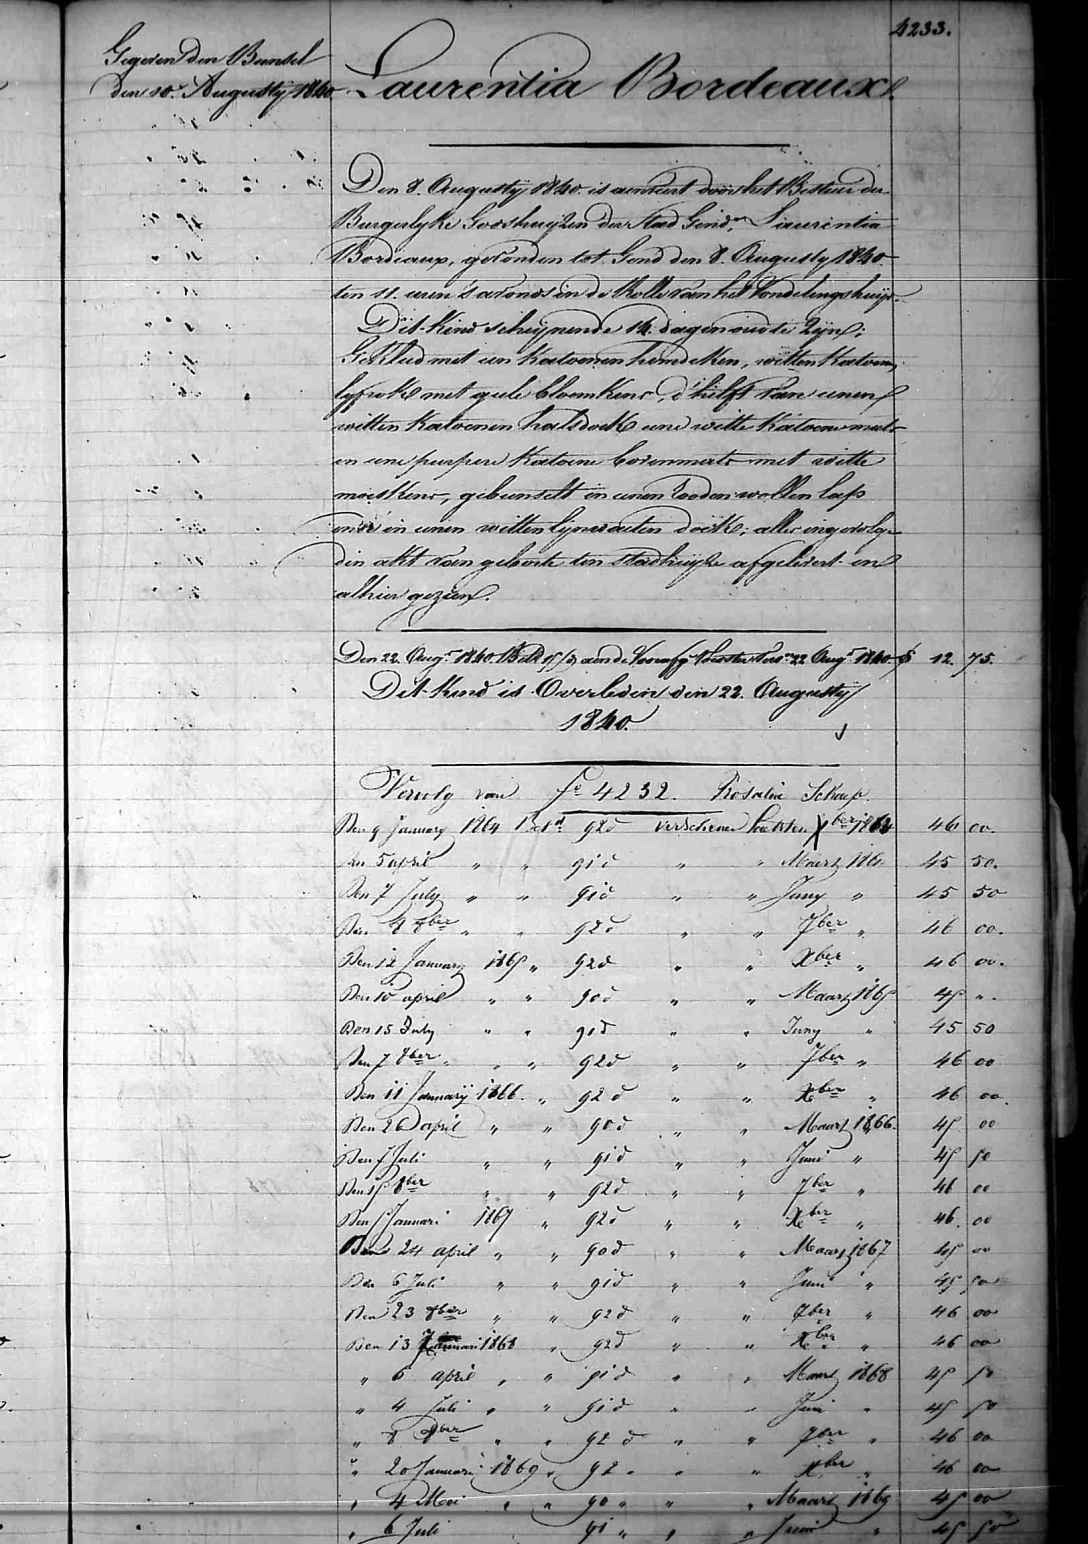 4233.
Gegeven den Bunsel
den 10. Augusty 1840
Laurentia Bordeaux.
Den 8. Augusty 1840. is aenveert door het Bestier der
Burgerlyke Godshuyzen der Stad Gend, Laurentia
Bordeaux, gevonden tot Gend den 8. Augusty 1840.
ten 11. uren 's avonds in de Rolle van het Vondelingshuys.
Dit kind schynende 14. dagen oud te zyn;
Gekleed met een Katoenen hemdeken, witten Katoenen
lyfrok met gele bloemkens, d'helft van eenen
witten Katoenen halsdoek eene witte Katoene muts
en eene purpere Katoene bovenmuts met witte
mooskens, gebunselt in eenen rooden wollen lap
en in eenen witten lynwaeten doek; alles ingevolge
den akt van geboorte ten Stadhuyze afgelevert en
alhier gezien.
Den 22. Aug. 1840. 22 Aug. 1840 12. 75.
Dit Kind is Overleden den 22. Augusty
1840.
Vervolg van f° 4232. Rosalie Schoup.
Den 9 January 1864 92d verschenen Xber 46 00.
Den 5 april " " 91d " " Maert 186 45 50.
Den 7 July " " 91d " " Juny " 45 50
Den 4 8ber " " 92d " " 7ber " 46 00.
Den 12 January 1865 " 92d " " Xber " 46 00.
Den 10 april " " 90d " " Maart 1865 45 ".
Den 15 July " " 91d " " Juny " 45 50
Den 7 8ber " " 92d " " 7ber " 46 00
Den 11 Januarÿ 1866. " 92d " " Xber " 46 00.
Den 26 april " " 90d " " Maart 1866. 45 00
Den 5 Juli " " 91d " " Juni " 45 50
Den 15 8ber " " 92d " " 7ber " 46 00
Den 5 Januari 1867 " 92d " " Xber " 46. 00
Den 24 april " " 90d " " Maart 1867 45 00
Den 6 Juli " " 91d " " Juni " 45 50
Den 23 8ber " " 92d " " 7ber " 46 00
Den 13 Januari 1868 " 92d " " Xber " 46 00
" 6 april " " 91d " " Maart 1868 45 50
" 4 Juli " " 91d " " Juni " 45 50
" 8 8ber " " 92d " " 7ber " 46 00
" 20 Januari 1869 " 92 " " " Xber " 46 00
" 4 Mei " " 90 " " " Maart 1869 45 00
" 6 Juli 91 " " " Juni " 45 50